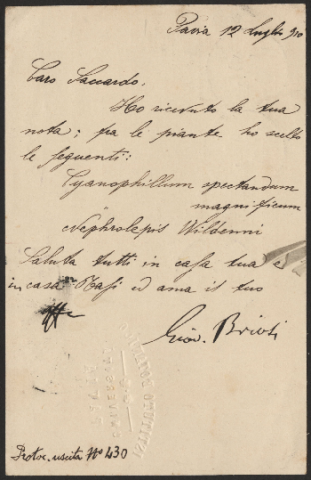 Pavia 12 Luglio 910
Caro Saccardo.
Ho ricevuto la tua
nota; fra le piante ho scelto
le seguenti:
Cyanophillum spectandum
magnificum
Nephrolepis Wildenni
Saluta tutti in casa tua e
in casa Masi ed ama il tuo
Giov. Briosi
ISTITUTO BOTANICO
Protoc. uscita No 430